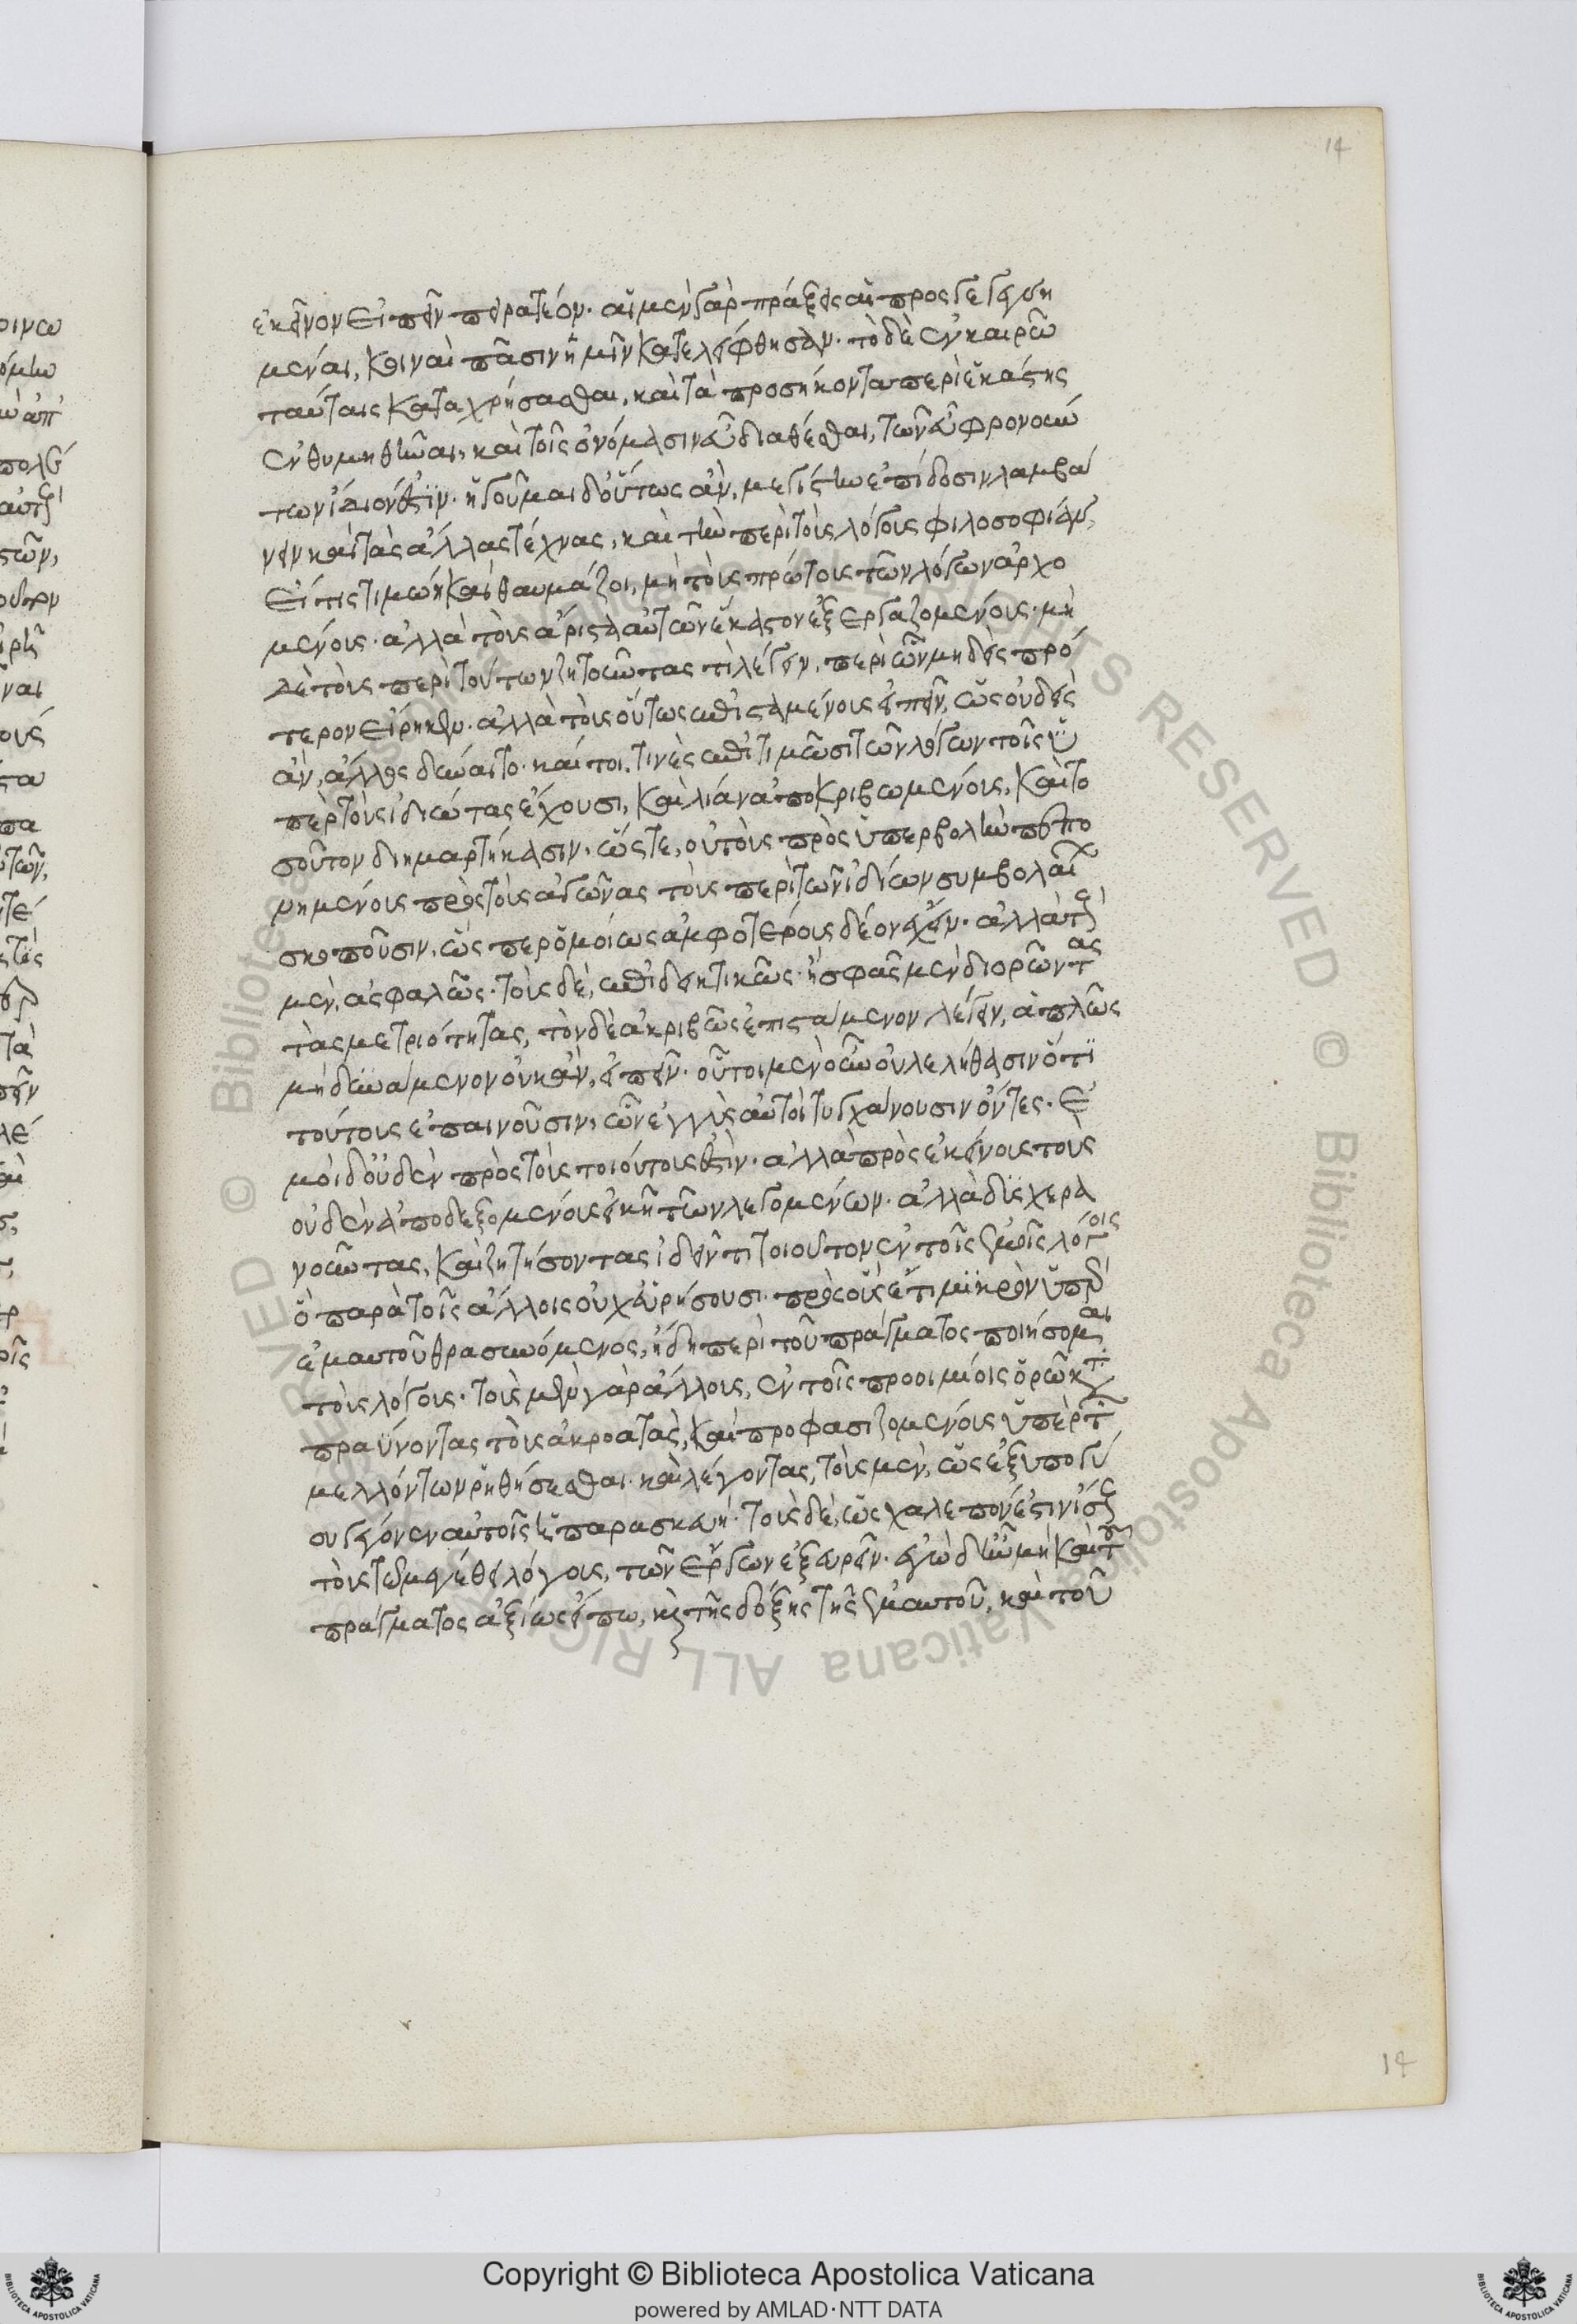 ἐκεῖνον εἰπεῖν πειρατέον· αἱ μὲν γὰρ πράξεις αἱ προςγεγενη
μέναι, κοιναὶ πᾶσιν ἡμῖν κατελείφθησαν· τὸ δὲ ἐν καιρῶ
ταύταις καταχρήσασθαι, καὶ τὰ προσήκοντα περὶ ἑκάστης
ἐνθυμηθῆναι, καὶ τοῖς ὀνόμασιν εὖ διαθέσθαι, τῶν εὖ φρονούν
των ἴδιόν ἐστϊν· ἡγοῦμαι δ' οὕτως ἂν, μεγίστην ἐπίδοσιν λαμβά
νειν καὶ τὰς ἄλλας τέχνας, καὶ τὴν περὶ τοὺς λόγους φιλοσοφίαν,
εἴ τις τιμώη καὶ θαυμάζοι, μὴ τοὺς πρώτους τῶν λόγων ἀρχο
μένους· ἀλλὰ τοὺς ἄριστα αὐτῶν ἕκαστον ἐξεργαζομένους· μὴ
δὲ τοὺς περὶ τούτων ζητοῦντας τὶ λέγειν, περὶ ὧν μηδεὶς πρό
τερον εἴρηκεν· ἀλλὰ τοὺς οὕτως ἐπισταμένους εἰπεῖν, ὡς οὐδεὶς
ἂν, ἄλλος δύναιτο· καίτοι, τινὲς ἐπιτιμῶσι τῶν λόγων τοῖς ὑ
πὲρ τοὺς ἰδιώτας ἔχουσι, καὶ λίαν ἀποκριβωμένοις, καὶ το
σοῦτον διημαρτήκασιν· ὥστε, οὐ τοὺς πρὸς ὑπερβολὴν πεπο
νημένους πρὸς τοὺς ἀγῶνας τοὺς περὶ τῶν ἰδίων συμβολαίων
σκοποῦσιν, ὥσπερ ὁμοίως ἀμφοτέρους δέον ἔχειν· ἀλλὰ τοὺς
μὲν, ἀσφαλῶς· τοὺς δὲ, ἐπιδεικτικῶς· ἢ σφᾶς μὲν διορῶντας
τὰς μετριότητας, τὸν δὲ ἀκριβῶς ἐπιστάμενον λέγειν, ἁπλῶς
μὴ δυνάμενον οὐκ ἂν, εἰπεῖν· οὗτοι μὲν οὖν οὐ λελήθασιν ὅτϊ
τούτους ἐπαινοῦσιν, ὧν ἐγγὺς αὐτοὶ τυγχάνουσιν ὄντες· ἐ
μοὶ δ' οὐδὲν πρὸς τοὺς τοιούτους ἐστὶν· ἀλλὰ πρὸς ἐκείνους τοὺς
οὐδὲν ἀποδεξομένους εἰκῆ τῶν λεγομένων· ἀλλὰ δυσχερα
νοῦντας, καὶ ζητήσοντας ἰδεῖν τι τοιοῦτον ἐν τοῖς ἐμοῖς λόγοις
ὃ παρὰ τοῖς ἄλλοις οὐχ εὑρήσουσι· πρὸς οὓς ἔτι μϊκρὸν ὑπὲρ
ἐμαυτοῦ θρασυνόμενος, ἤδη περὶ τοῦ πράγματος ποιήσομαι
τοὺς λόγους· τοὺς μὲν γὰρ ἄλλους, ἐν τοῖς προοιμίοις ὁρῶ κατα
πραΰνοντας τοὺς ἀκροατὰς, καὶ προφασιζομένους ὑπὲρ τῶν
μελλόντων ῥηθήσεσθαι· καὶ λέγοντας, τοὺς μὲν, ὡς ἐξ ὑπογύ
ου γέγονεν αὐτοῖς ἡ παρασκευή· τοὺς δὲ, ὡς χαλεπόν ἐστιν ἴσους
τοὺς τῶ μεγέθει λόγους, τῶν ἔργων ἐξευρεῖν· ἐγὼ δ' ἢν μὴ καὶ τοῦ
πράγματος ἀξίως εἴπω, καὶ τῆς δόξης τῆς ἐμαυτοῦ, καὶ τοῦ
14
14
Copyright © Biblioteca Apostolica Vaticana
powered by AMLAD·NTT DATA